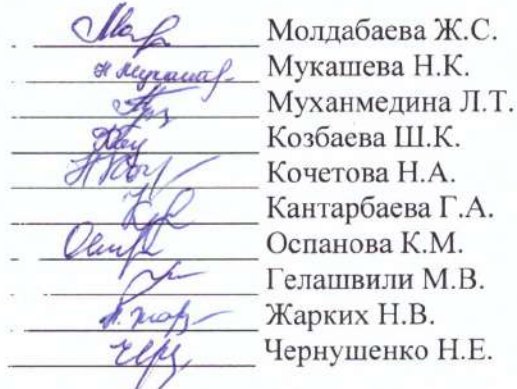 Молдабаева Ж.С.
Мукашева Н.К.
Муханмедина Л.Т.
Козбаева Ш.К.
Кочетова Н.А.
Кантарбаева Г.А.
Оспанова К.М.
Гелашвили М.В.
Жарких Н.В.
Чернушенко Н.Е.